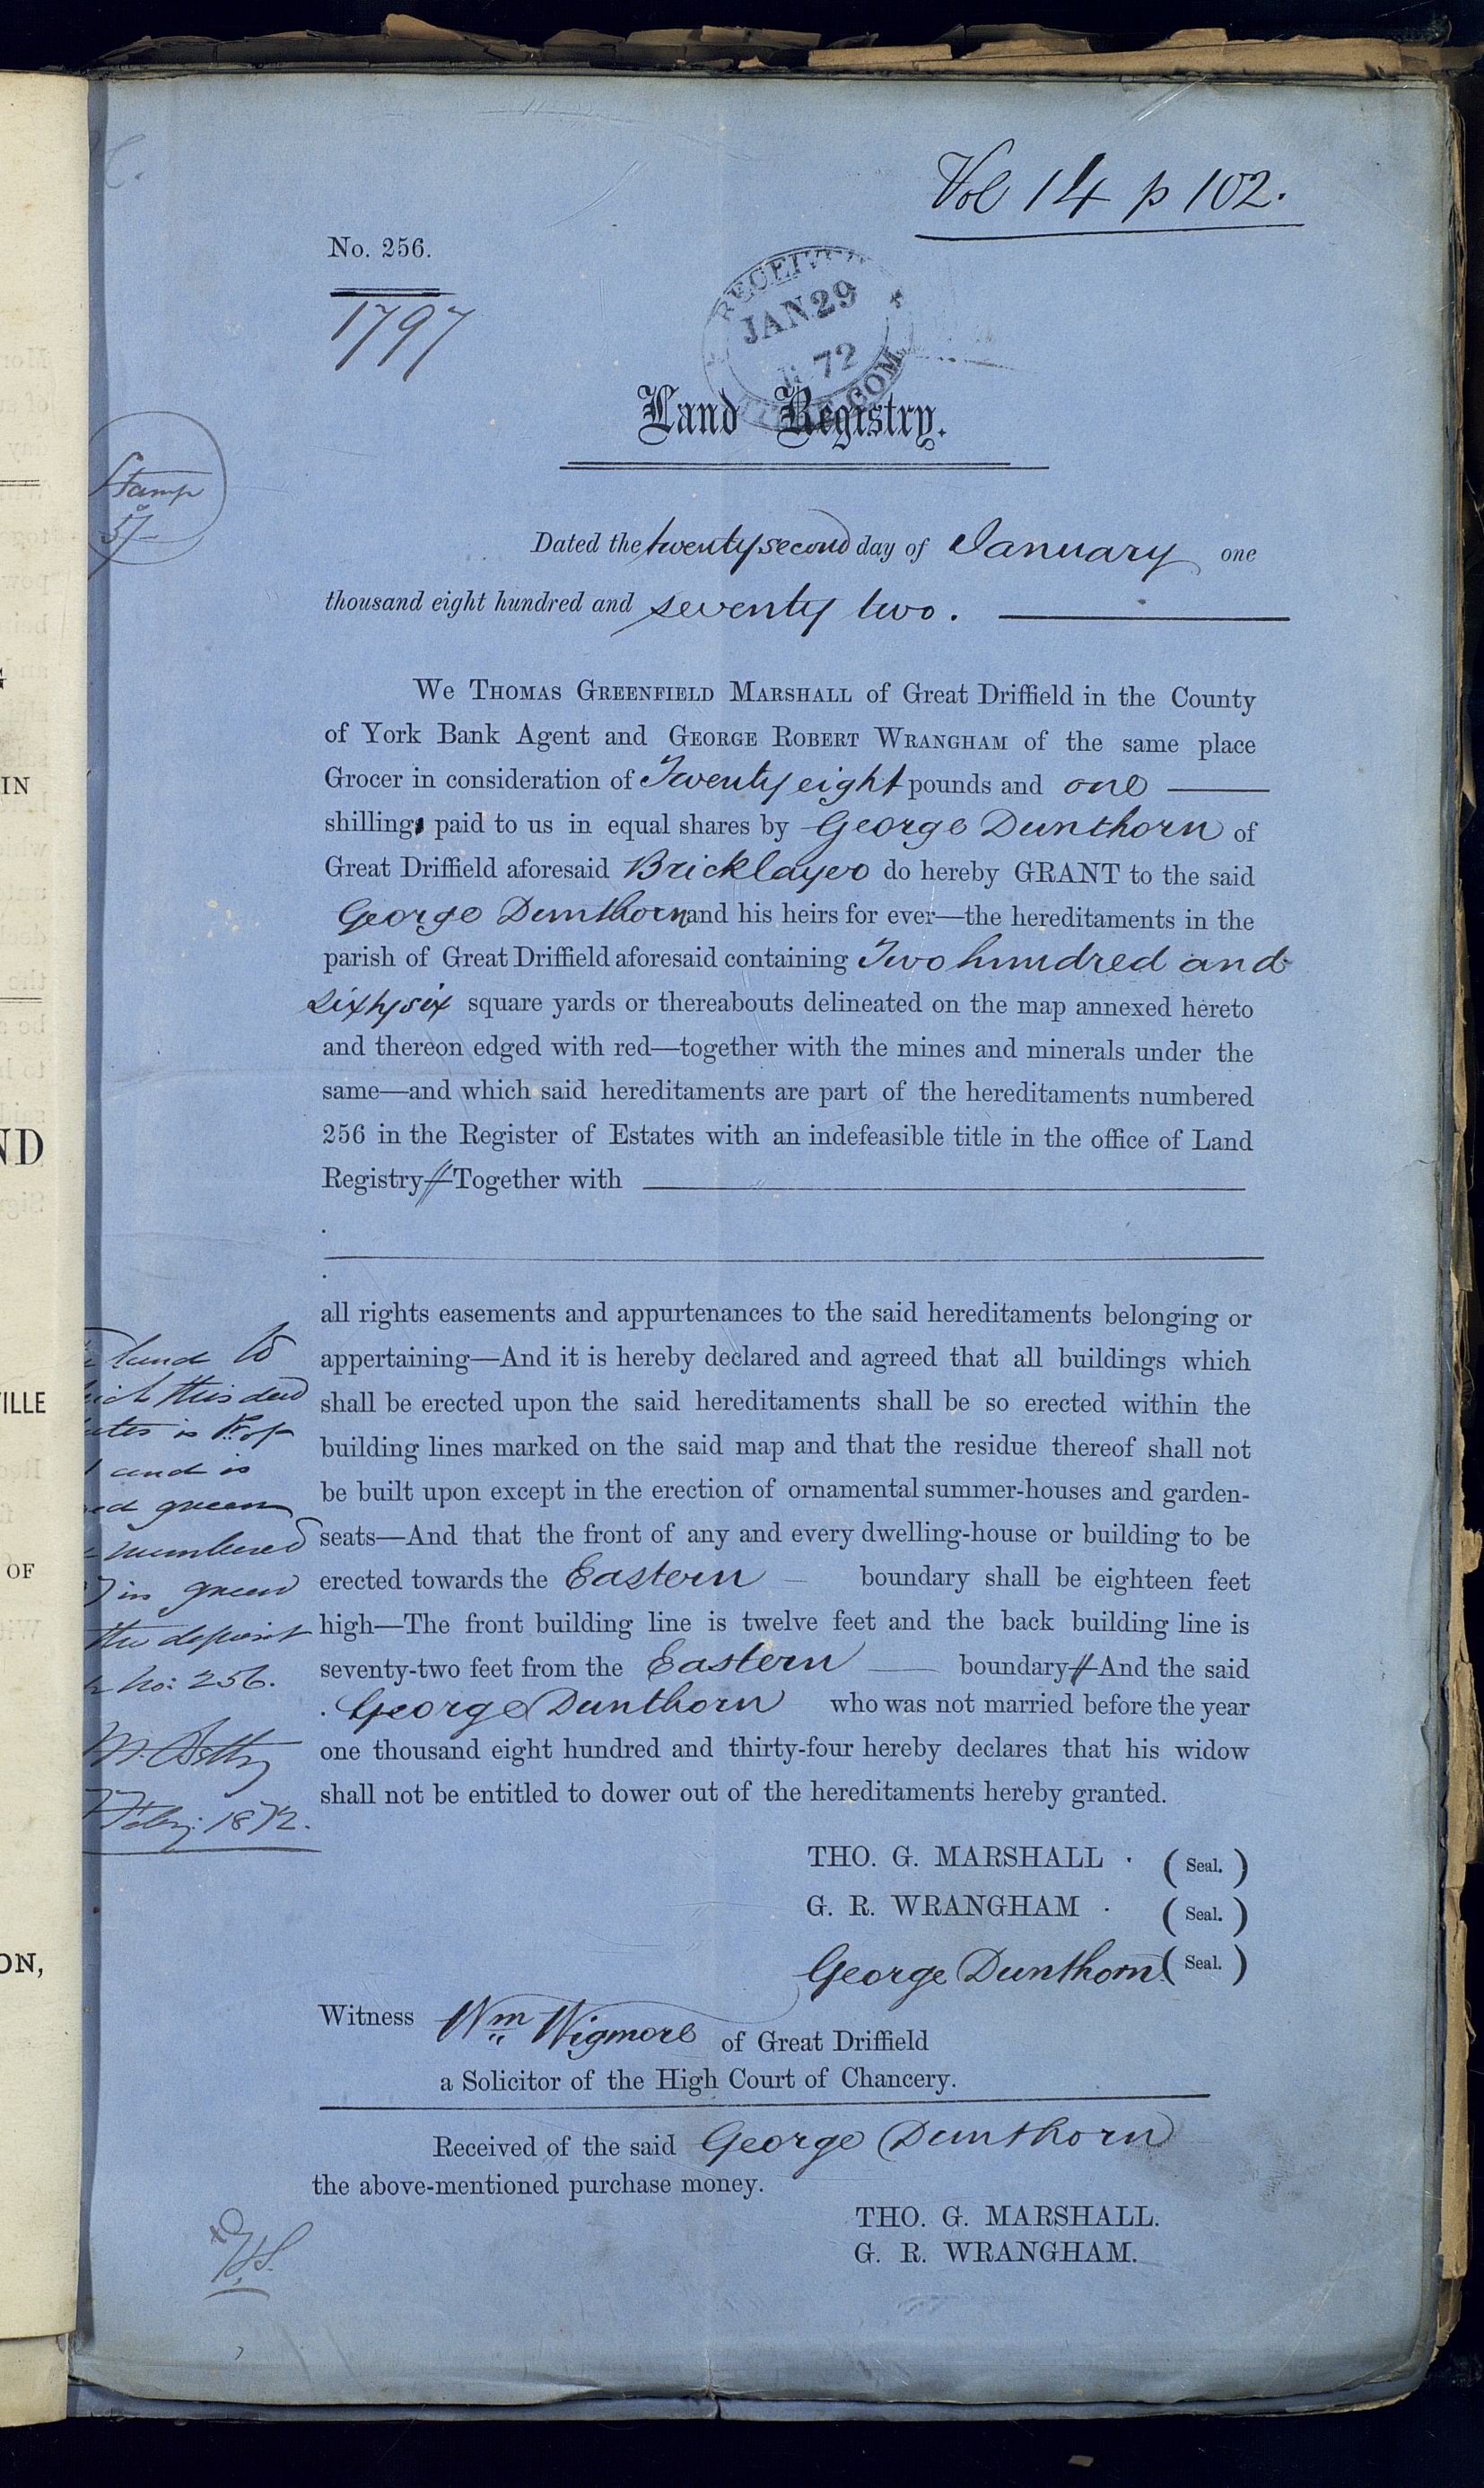 Vol 14 p 102.
No. 256.
1797
RECEIVED
JAN 29
72
COM
Land Registry.
Stamp
5/-
Dated the twenty second day of January one
thousand eight hundred and seventy two.
We THOMAS GREENFIELD MARSHALL of Great Driffield in the County
of York Bank Agent and GEORGE ROBERT WRANGHAM of the same place
Grocer in consideration of Twenty eight pounds and one
shilling paid to us in equal shares by George Dunthorn of
Great Driffield aforesaid Bricklayer do hereby GRANT to the said
George Dunthorn and his heirs for ever—the hereditaments in the
parish of Great Driffield aforesaid containing Two hundred and
sixty six square yards or thereabouts delineated on the map annexed hereto
and thereon edged with red—together with the mines and minerals under the
same—and which said hereditaments are part of the hereditaments numbered
256 in the Register of Estates with an indefeasible title in the office of Land
Registry—Together with
all rights easements and appurtenances to the said hereditaments belonging or
appertaining—And it is hereby declared and agreed that all buildings which
shall be erected upon the said hereditaments shall be so erected within the
building lines marked on the said map and that the residue thereof shall not
be built upon except in the erection of ornamental summer-houses and garden-
seats—And that the front of any and every dwelling-house or building to be
erected towards the Eastern boundary shall be eighteen feet
high—The front building line is twelve feet and the back building line is
seventy-two feet from the Eastern boundary—And the said
George Dunthorn who was not married before the year
one thousand eight hundred and thirty-four hereby declares that his widow
shall not be entitled to dower out of the hereditaments hereby granted.
land to
this deed
is Pt. of
and is
green
numbered
in green
the deposit
No: 256.
Feby: 1872.
THO. G. MARSHALL . (Seal.)
G. R. WRANGHAM . (Seal.)
George Dunthorn (Seal.)
Witness Wm Wigmore of Great Driffield
a Solicitor of the High Court of Chancery.
Received of the said George Dunthorn
the above-mentioned purchase money.
THO. G. MARSHALL.
G. R. WRANGHAM.
IN
ND
VILLE
OF
ON,